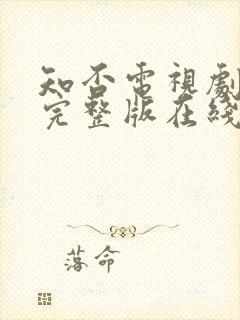 知否電視劇
完整版在綫
落命